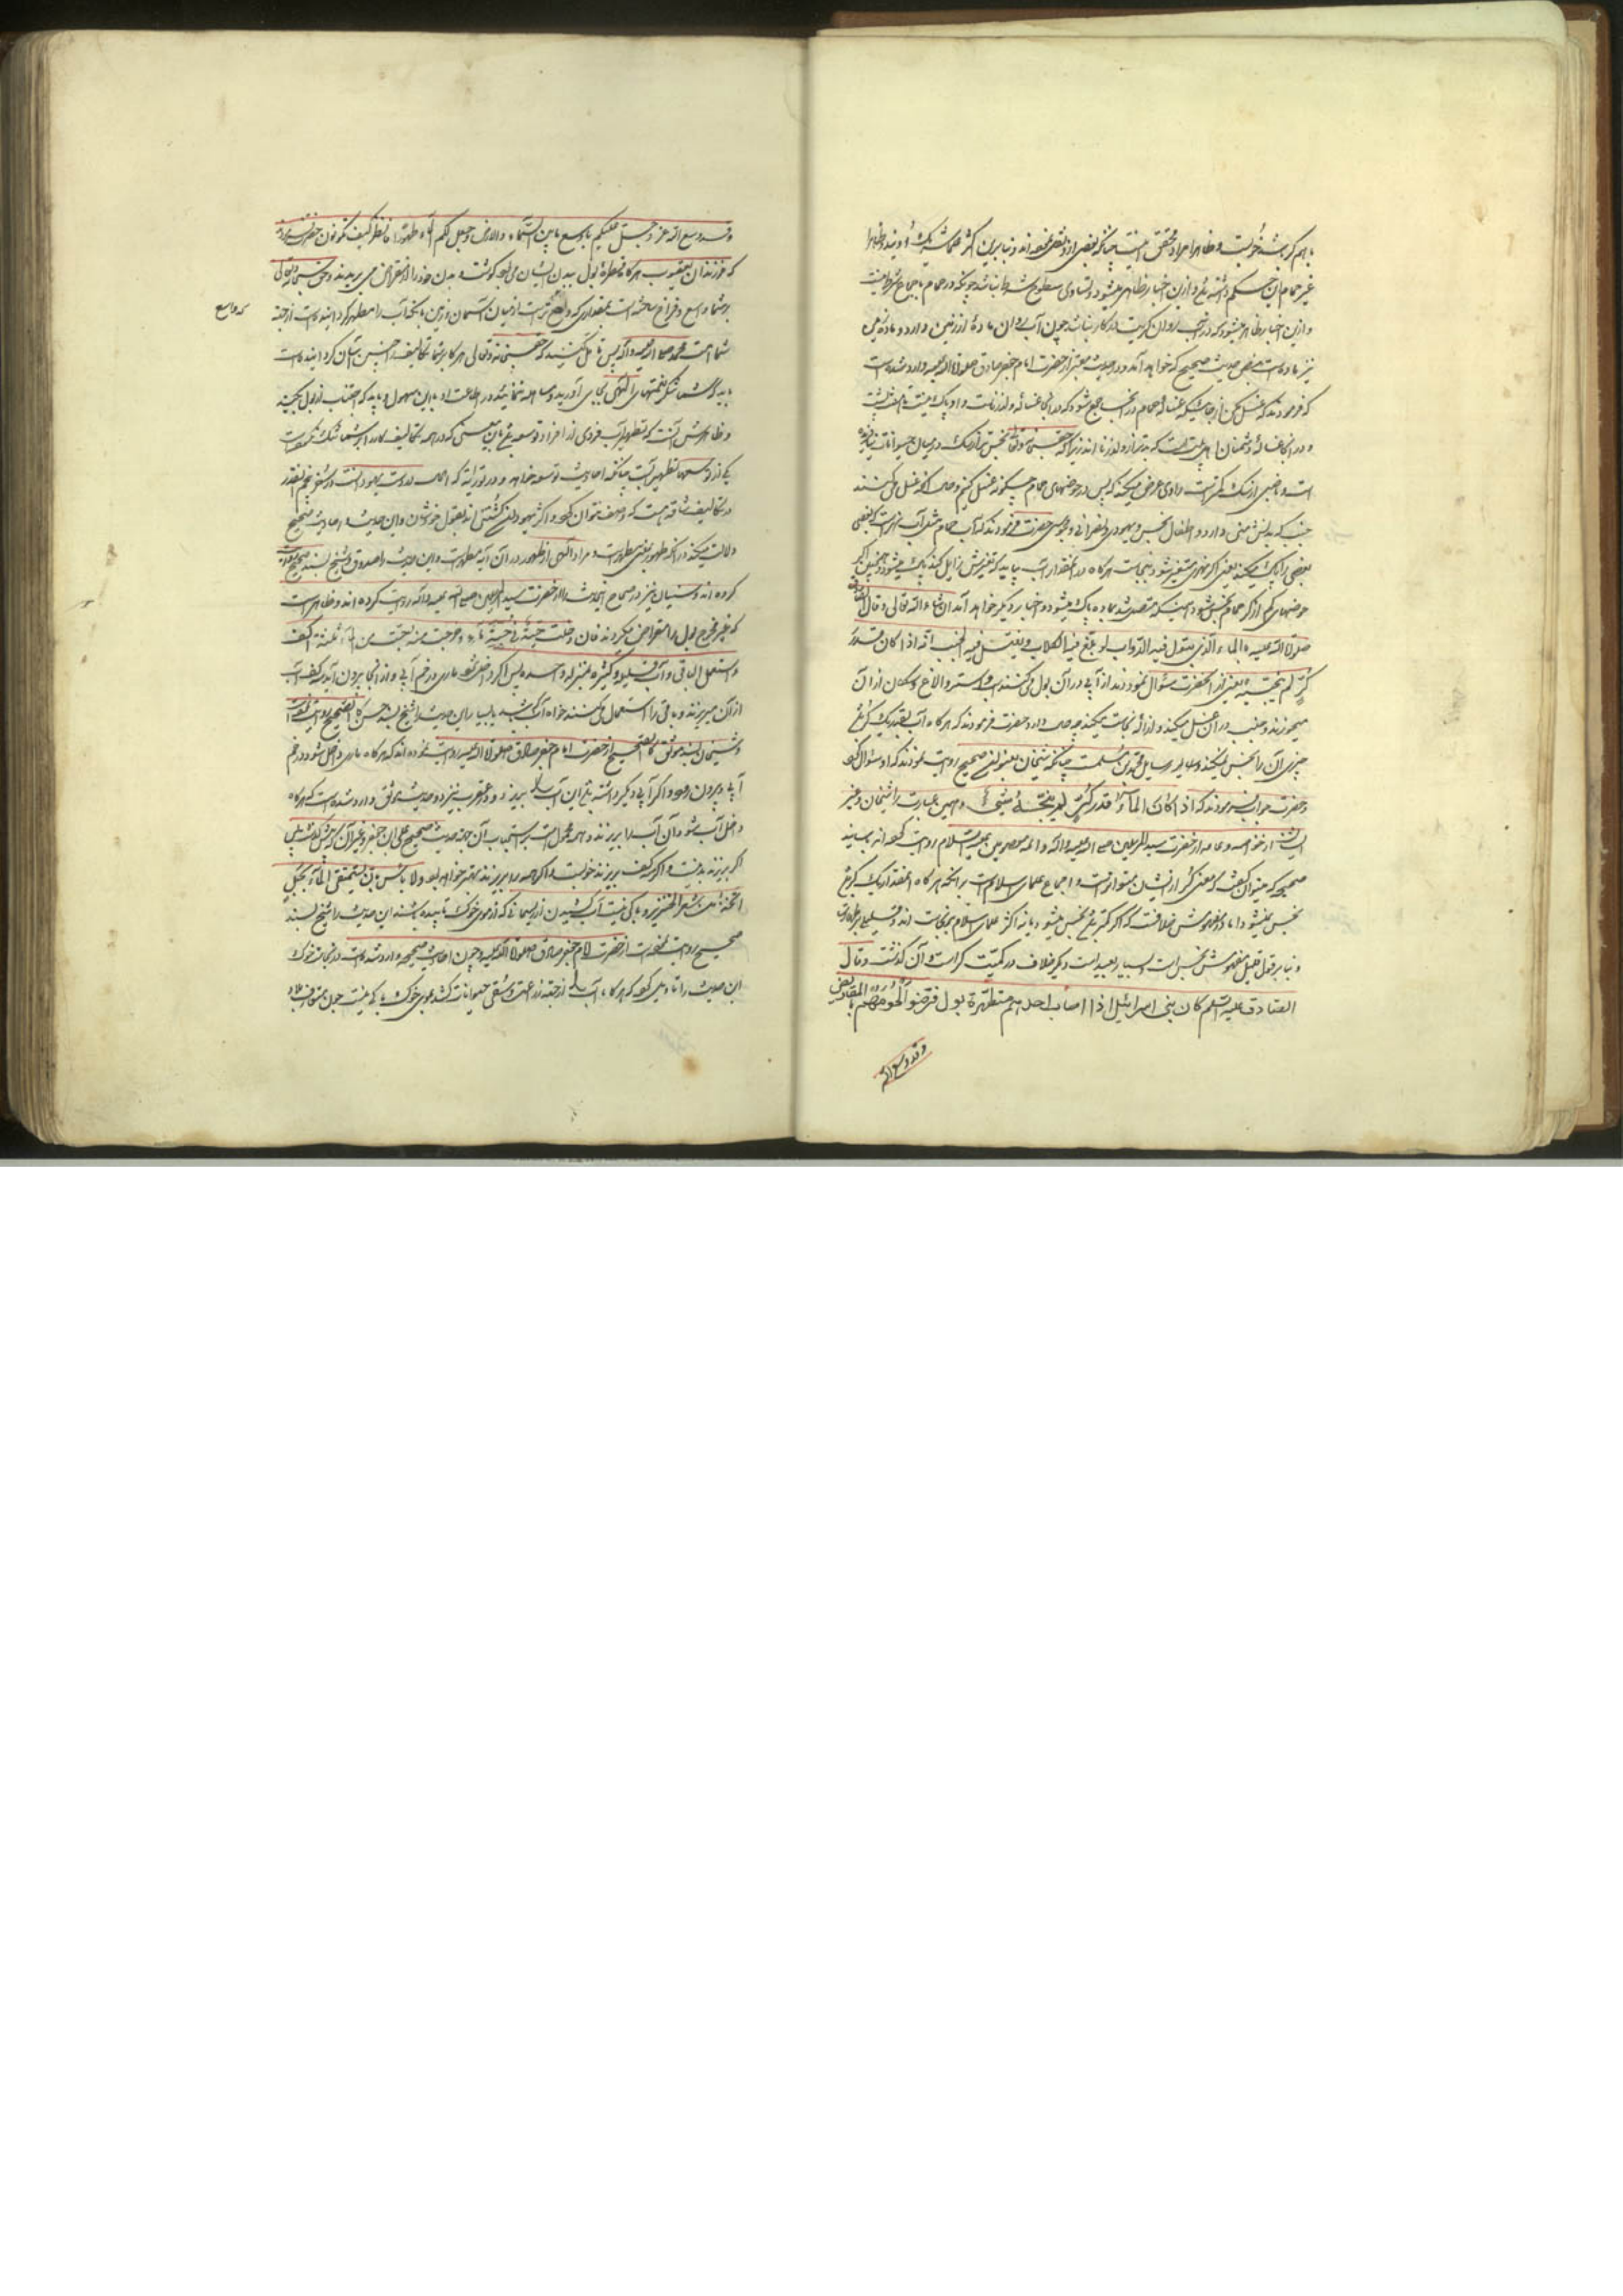 باهم کر باشد خوبست و ظاهرا مراد محقق اینست چنانکه بعضی از و نقل نموده اند و بنا برین اکثر علما شریک او نیند و ظاهرا
غیر حمام این حکم داشته باشد و ازین اخبار ظاهر میشود و تساوی سطوح شرط نباشد چونکه در حمام باجماع شرط نیست
و ازین اخبار ظاهر میشود که در آب روان کریت در کار نباشد چون آب روان ماده از زمین دارد و ماده زمین
نیز ماده است بنص حدیث صحیح که خواهد آمد و در حدیث معتبر از حضرت امام جعفر صادق صلوات الله علیه وارد شده است
که فرمودند که غسل مکن از جائیکه غساله حمام در آنجا جمع شود که در آنجا غساله ولد زنا است و او پاک نیست تا هفت پشت
و در آنجا غساله دشمنان اهل بیت است که بدتر از ولد زنا اند زیرا که حق سبحانه و تعالی نجس تر از سگ در میان حیوانات نیافریده
است و ناصبی از سگ بدتر است راوی عرض میکند که پس در حوضهای حمام چگونه غسل کنیم و حال آنکه غسل میکنند
جنب که بدنش منی دارد و اطفال نجس و یهودی و نصرانی و مجوسی حضرت فرمودند که آب حمام مثل آب نهر است که بعضی
بعضی را پاک میکند یعنی اگر نهری متغیر شود بنجاست هرگاه در آنمقدار آب بیاید که تغیرش زایل کند پاک میشود و همچنین اگر
حوضهای کم از کر حمام نجس شود همینکه متصل شد بماده پاک میشود و اخبار دیگر خواهد آمد ان شاء الله تعالی و قال الصادق
صلوات الله علیه فی الماء الذی تبول فیه الدواب و تلغ فیه الکلاب و یغتسل فیه الجنب انه اذا کان قدر
کر لم ینجسه شیء یعنی از آنحضرت سؤال نمودند از آبی که در آن بول میکنند اسب و استر و الاغ و سگان از آن
میخورند و جنب در آن غسل میکند و ازاله نجاست میکند چه حال دارد حضرت فرمودند که هرگاه آب بقدر یک کر باشد
چیزی آن را نجس نمیکند و سایل محمد بن مسلمست چنانکه شیخان بچند سند صحیح روایت نمودند که او سؤال کرد
و حضرت جواب فرمودند که اذا کان الماء قدر کر لم ینجسه شیء و همین عبارت را شیخان و غیر
ایشان از خاصه و عامه از حضرت سید المرسلین صلی الله علیه و آله و ائمه معصومین علیهم السلام روایت کرده اند باسانید
صحیحه که میتوان گفت که معنی کر از ایشان متواتر است و اجماع علمای اسلامست بر آنکه هرگاه آنقدار یک کر باشد
نجس نمیشود اما در مفهومش خلافست که اگر کمتر باشد نجس میشود یا نه اکثر علمای اسلام بر نجاست اند و قلیلی بر طهارت
و بنا بر قول قلیل مفهومش نجس است و بسیار بعید است و دیگر خلاف در کمیت کر است و آن گذشت و قال
الصادق علیه السلم کان بنی اسرائیل اذا اصاب احدهم قطرة بول قرضوا لحومهم بالمقاریض
و قد وسع الله
و قد وسع الله عز و جل علیکم باوسع ما بین السماء و الارض و جعل لکم الماء طهورا فانظر کیف تکونون حضرت فرمودند
که فرزندان یعقوب هرگاه قطره بول ببدن ایشان میرسید گوشت بدن خود را از مقراض می بریدند و حق سبحانه و تعالی
بر شما واسع و فراخ ساخته است بمقداری که واسع ترست از میان آسمان و زمین بآنکه آب را مطهر گردانیده است از جهه
که واسع
شما امت محمد صلی الله علیه و آله پس تأمل کنید که حق سبحانه و تعالی هرگاه بر شما تکالیف را چنین آسان گردانیده است
باید که شما شکر نعمتهای الهی بجای آورید و مساهله ننمائید در اطاعت او باین سهولت و باید که اجتناب از بول بکنید
و ظاهرش آنست که تطهیر آب فردی از افراد توسعه باشد باین معنی که در همه تکالیف کار را بر شما سبک کرده است
یکی از توسعها تطهیر آبست چنانکه احادیث توسعه خواهد آمد و در توریة که الحال در دست یهود است در سفر پنجم آنقدر
از تکالیف شاقه هست که وصف نتوان کرد و اکثر یهود واجب کشتنی اند بقول خودشان و این حدیث و احادیث صحیح
دلالت میکند بر آنکه طهور بمعنی مطهر است و مراد الهی از طهور در آن آیه مطهر است و این حدیث را صدوق و شیخ بسند صحیح روایت
کرده اند و سنیان نیز در صحاح این حدیث را از حضرت سید المرسلین صلی الله علیه و آله روایت کرده اند و ظاهر است
که غیر مخرج بول را مقراض میکردند فان دخلت حیة فی حب ماء و خرجت منه صب من الماء ثلثة اکف
و استعمل الباقی و قلیله و کثیره بمنزلة واحدة پس اگر داخل شود ماری در خم آبی و از آنجا بیرون آید سه کف آب
از آن میریزند و باقی را استعمال میکنند خواه آب کم باشد یا بسیار این حدیث را شیخ بسند حسن کالصحیح روایت کرده است
و شیخان بسند موثق کالصحیح از حضرت امام جعفر صادق صلوات الله علیه روایت نموده اند که هرگاه ماری داخل شود در خم
آبی و بیرون رود اگر آبی دیگر داشته باشی این آب را بریز و در عقرب نیز دو حدیث موثق وارد شده است که هرگاه
داخل آب شود آن آب را بریزند و همه محمول است بر استحباب آن بجهت حدیث صحیح علی بن جعفر و غیر آن که پیش گذشت پس
اگر بریزند بد نیست و اگر سه کف بریزند خوبست و اگر همه را بریزند بهتر خواهد بود و لا بأس بان یستقی الماء بحبل
اتخذ من شعر الخنزیر و باکی نیست آب کشیدن از ریسمانی که از موی خوک تابیده باشند این حدیث را شیخ بسند
صحیح روایت نموده است از حضرت امام جعفر صادق صلوات الله علیه و چون احادیث صحیحه وارد شده است در نجاست خوک
این حدیث را تأویل کرده که هرگاه آب را از جهه زراعت و سقی حیوانات کشند بموی خوک باکی نیست چون متعارف بوده